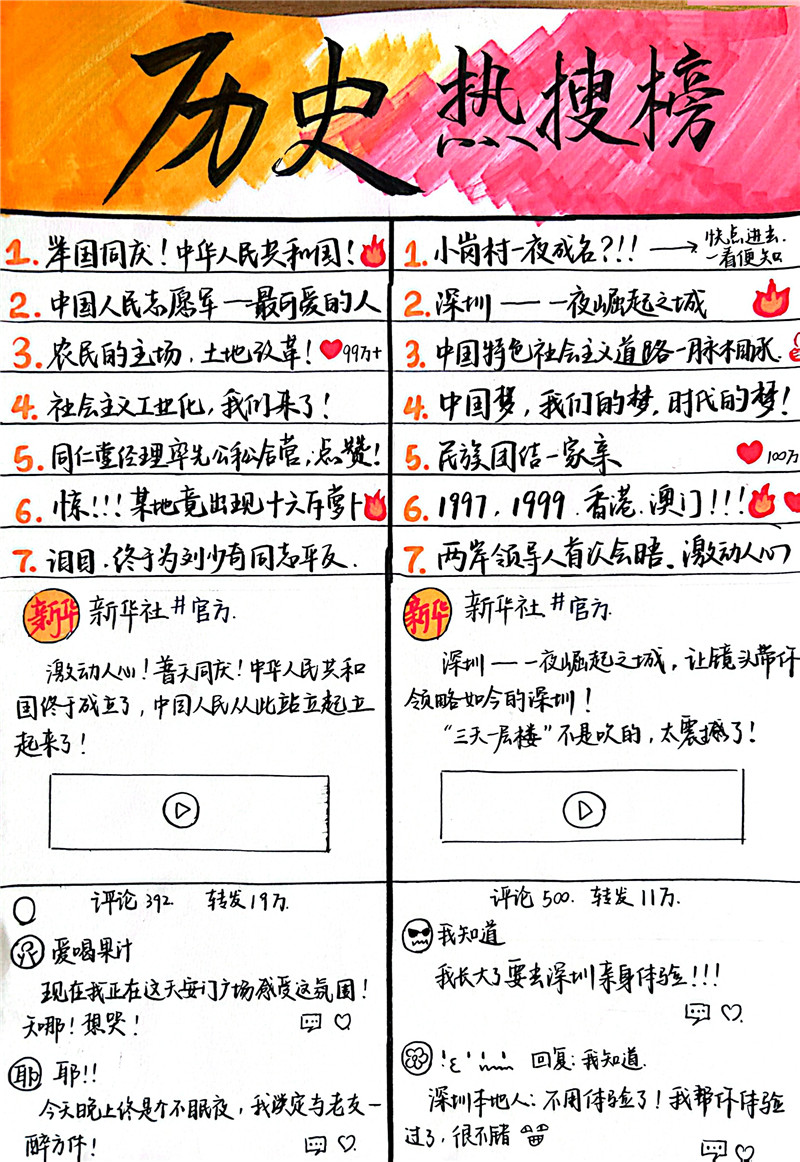 历史热搜榜
1. 举国同庆！中华人民共和国！
2. 中国人民志愿军——最可爱的人
3. 农民的主场，土地改革！99万+
4. 社会主义工业化，我们来了！
5. 同仁堂经理率先公私合营，点赞！
6. 惊！！！某地竟出现十六斤萝卜
7. 泪目，终于为刘少奇同志平反.
新华 新华社#官方.
激动人心！普天同庆！中华人民共和
国终于成立了，中国人民从此站立起立
起来了！
评论392 转发19万.
爱喝果汁
现在我正在这天安门广场感受这氛围！
天哪！想哭！
耶 耶!!
今天晚上终是个不眠夜，我决定与老友一
醉方休！
1. 小岗村一夜成名？!! → 快点进去.
一看便知
2. 深圳——一夜崛起之城
3. 中国特色社会主义道路一脉相承.
4. 中国梦，我们的梦，时代的梦！
5. 民族团结一家亲 100万
6. 1997，1999.香港.澳门！！！
7. 两岸领导人首次会晤。激动人心
新华 新华社#官方.
深圳——一夜崛起之城，让镜头带你
领略如今的深圳！
“三天一层楼”不是吹的，太震撼了！
评论500. 转发11万.
我知道
我长大了要去深圳亲身体验！！！
回复：我知道.
深圳本地人：不用体验了！我帮你体验
过了，很不错